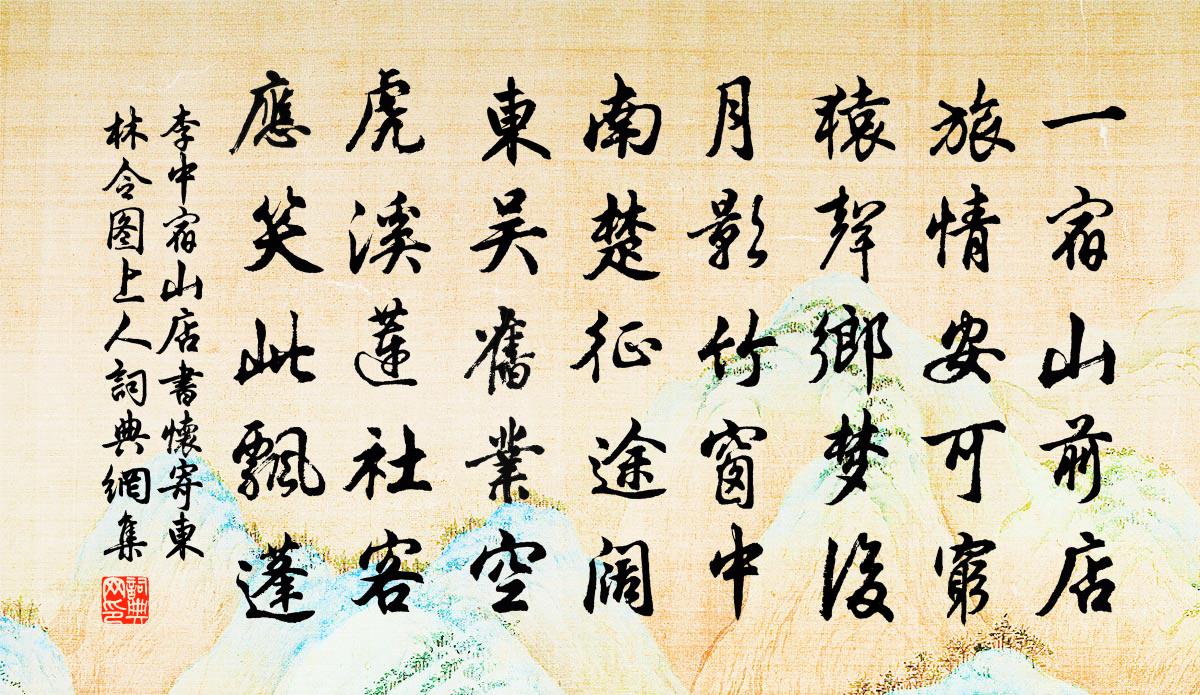 一宿山前店
旅情安可窮
猿聲鄉梦後
月影竹窗中
南楚征途闊
東吴舊業空
虎溪蓮社客
應笑此飄蓬
李中宿山店書懷寄東
林令图上人詞典網集